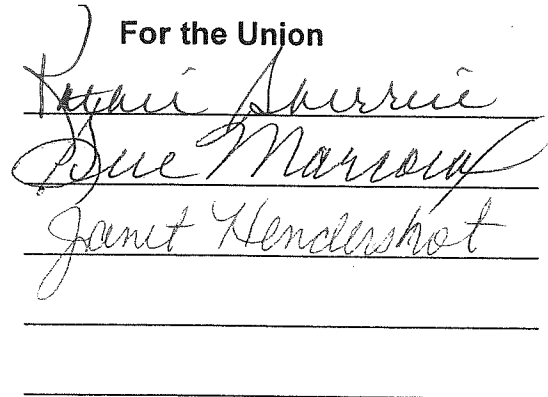 For the Union
Sue Marcoux
Janet Hendershot